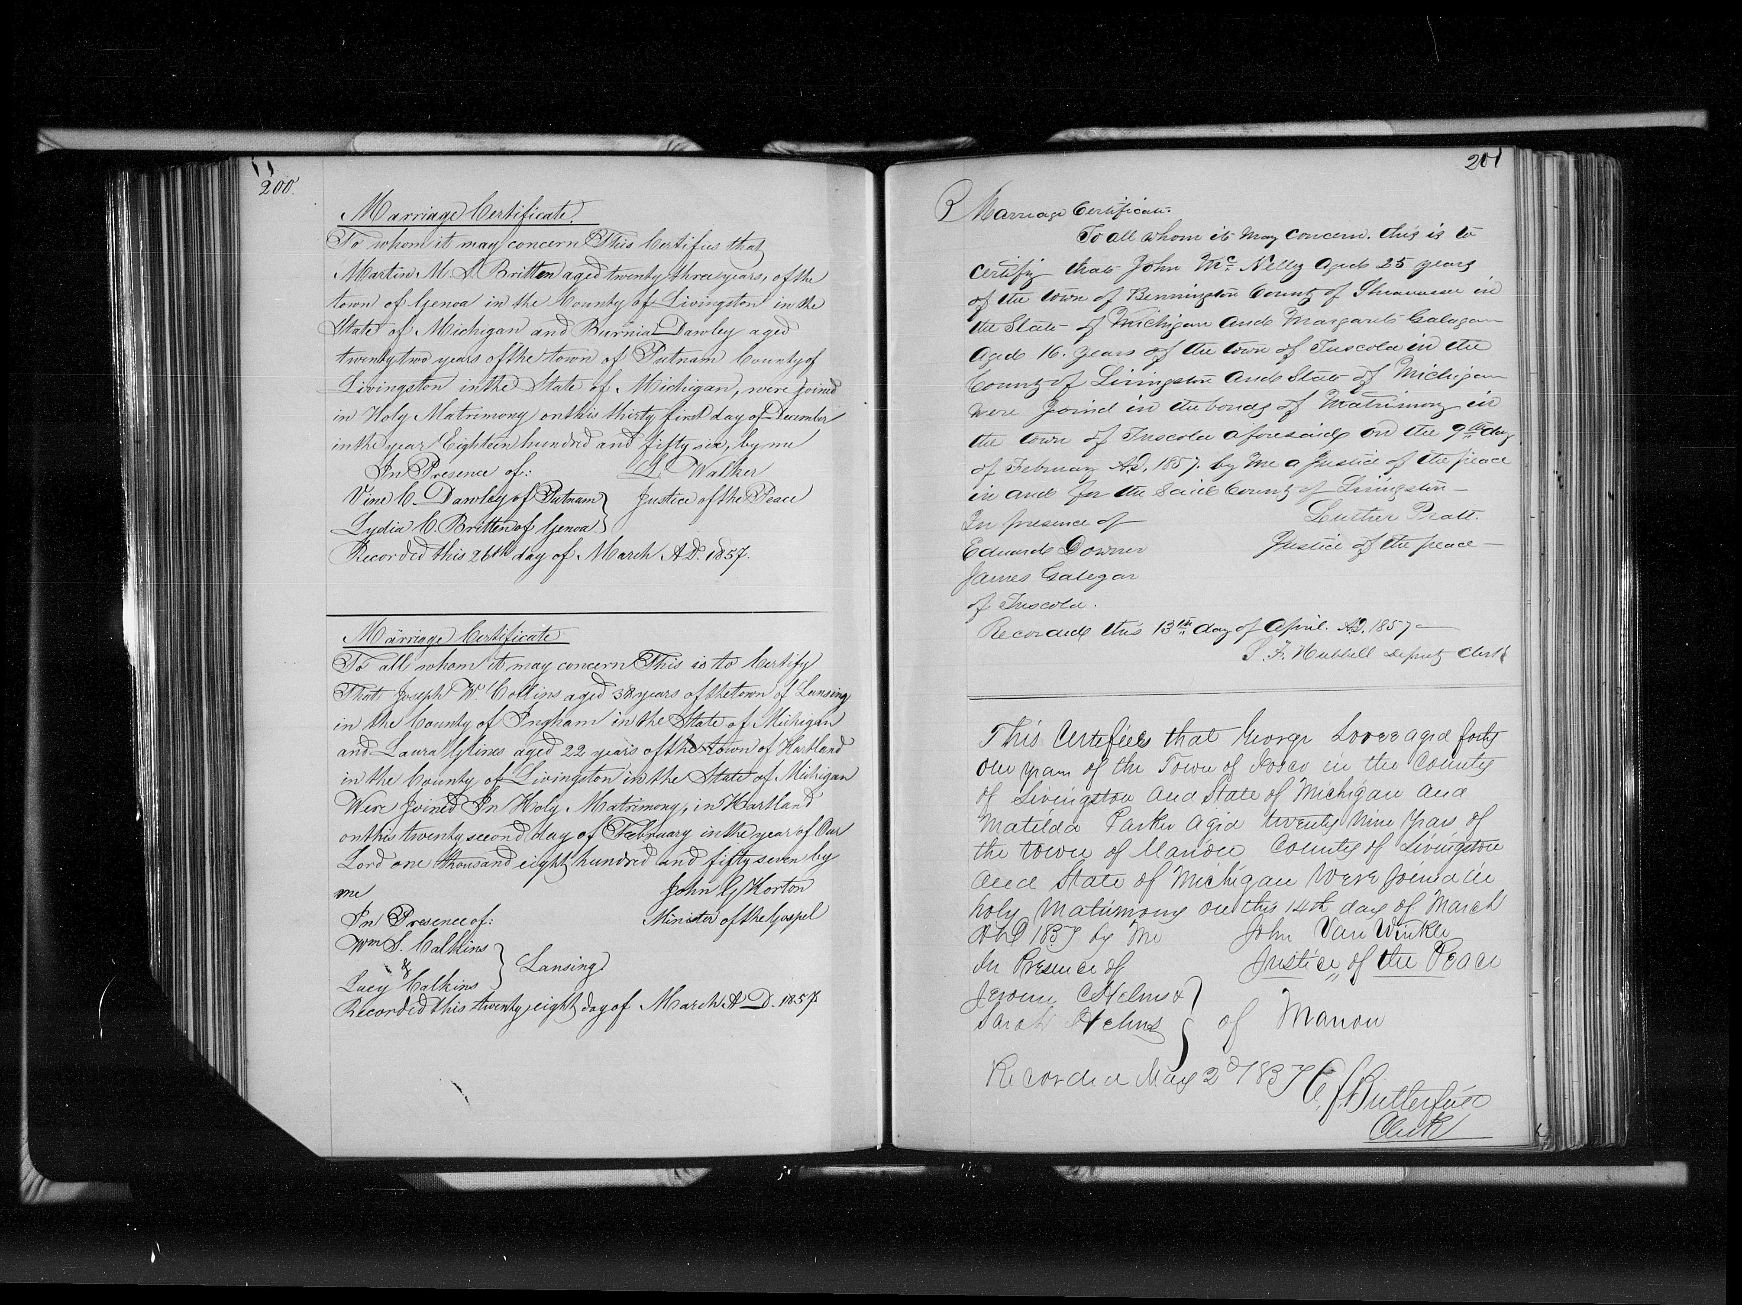 200.
Marriage Certificate.
To whom it may concern This Certifies that
Martin M. S. Britten aged twenty three years, of the
town of Genoa in the County of Livingston in the
State of Michigan and Burnia Dawley aged
twenty two years of the town of Putnam County of
Livingston in the State of Michigan, were joined
in Holy Matrimony on this thirty first day of December
in the year Eighteen hundred and fifty six, by me
In Presence of: Walker
Vine C. Dawley of Putnam Justice of the Peace
Lydia C. Britten of Genoa
Recorded this 26th day of March A.D. 1857.
Marriage Certificate
To all whom it may concern This is to Certify
That Joseph W Collins aged 38 years of the town of Lansing
in the County of Ingham in the State of Michigan
and Laura aged 22 years of the town of Hartland
in the County of Livingston in the State of Michigan
Were Joined In Holy Matrimony, in Hartland
on this twenty second day of February in the year of Our
Lord one thousand eight hundred and fifty seven by
me John G Horton
In Presence of: Minister of the Gospel
Wm S. Calkins
& Lansing
Lucy Calkins
Recorded this twenty eight day of March A D. 1857
201
Marriage Certificate.
To all whom it may concern. this is to
certify that John Mc Nelly aged 25 years
of the town of Bennington County of Shiawassee in
the State of Michigan and Margaret Galagan
aged 16. years of the town of Tuscola in the
County of Livingston and State of Michigan
were joined in the bonds of Matrimony in
the town of Tuscola aforesaid on the 9th day
of February A.D. 1857. by me a Justice of the peace
in and for the said County of Livingston
In presence of Luther Pratt.
Edward Downer Justice of the peace
James Galegar
of Tuscola.
Recorded this 13th day of April. A.D. 1857
F. Hubbell Deputy Clerk
This Certifies that George Love aged forty
one years of the Town of Iosco in the County
of Livingston and State of Michigan and
Matilda Parker aged twenty nine years of
the town of Marion County of Livingston
and State of Michigan were joined in
holy Matrimony on this 14th day of March
A.D 1857 by Me John Van Winkle
In Presence of Justice of the Peace
Jerome C Helms &
Sarah Helms of Marion
Recorded May 2d 1857 C J Butterfield
Clerk